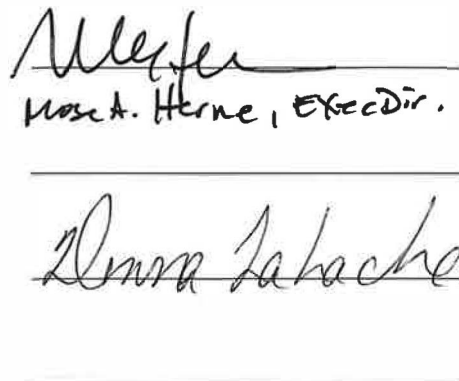 Mose A. Herne, Exec Dir.
Donna Lahache